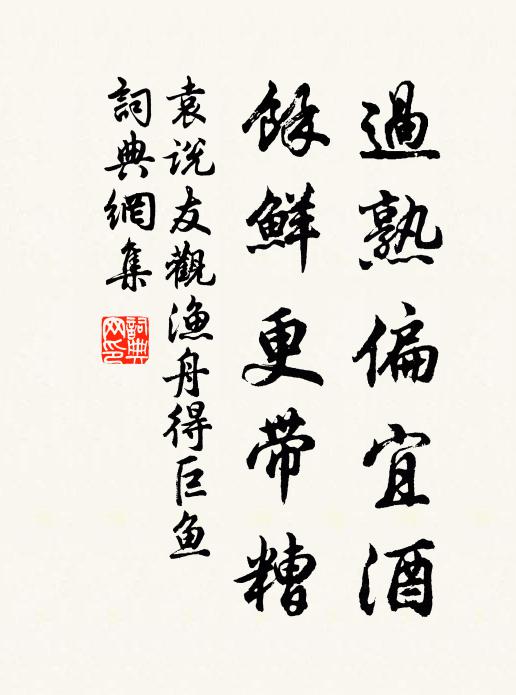 過熟偏宜酒
餘鮮更带糟
袁説友觀漁舟得巨鱼
詞典網集
詞典网印